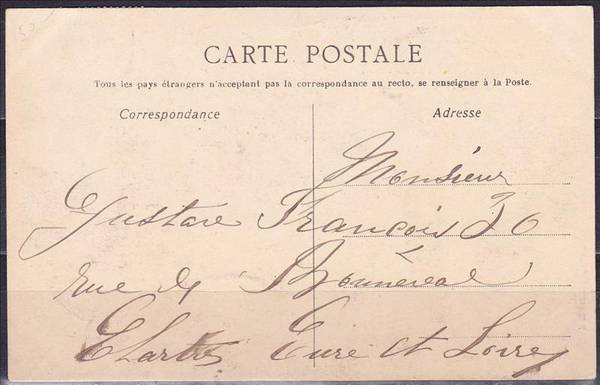 CARTE POSTALE
Tous les pays étrangers n'acceptent pas la correspondance au recto, se renseigner à la Poste.
Correspondance Adresse
Monsieur
Gustave François 36
rue de Bonneval
Chartres Eure et Loire